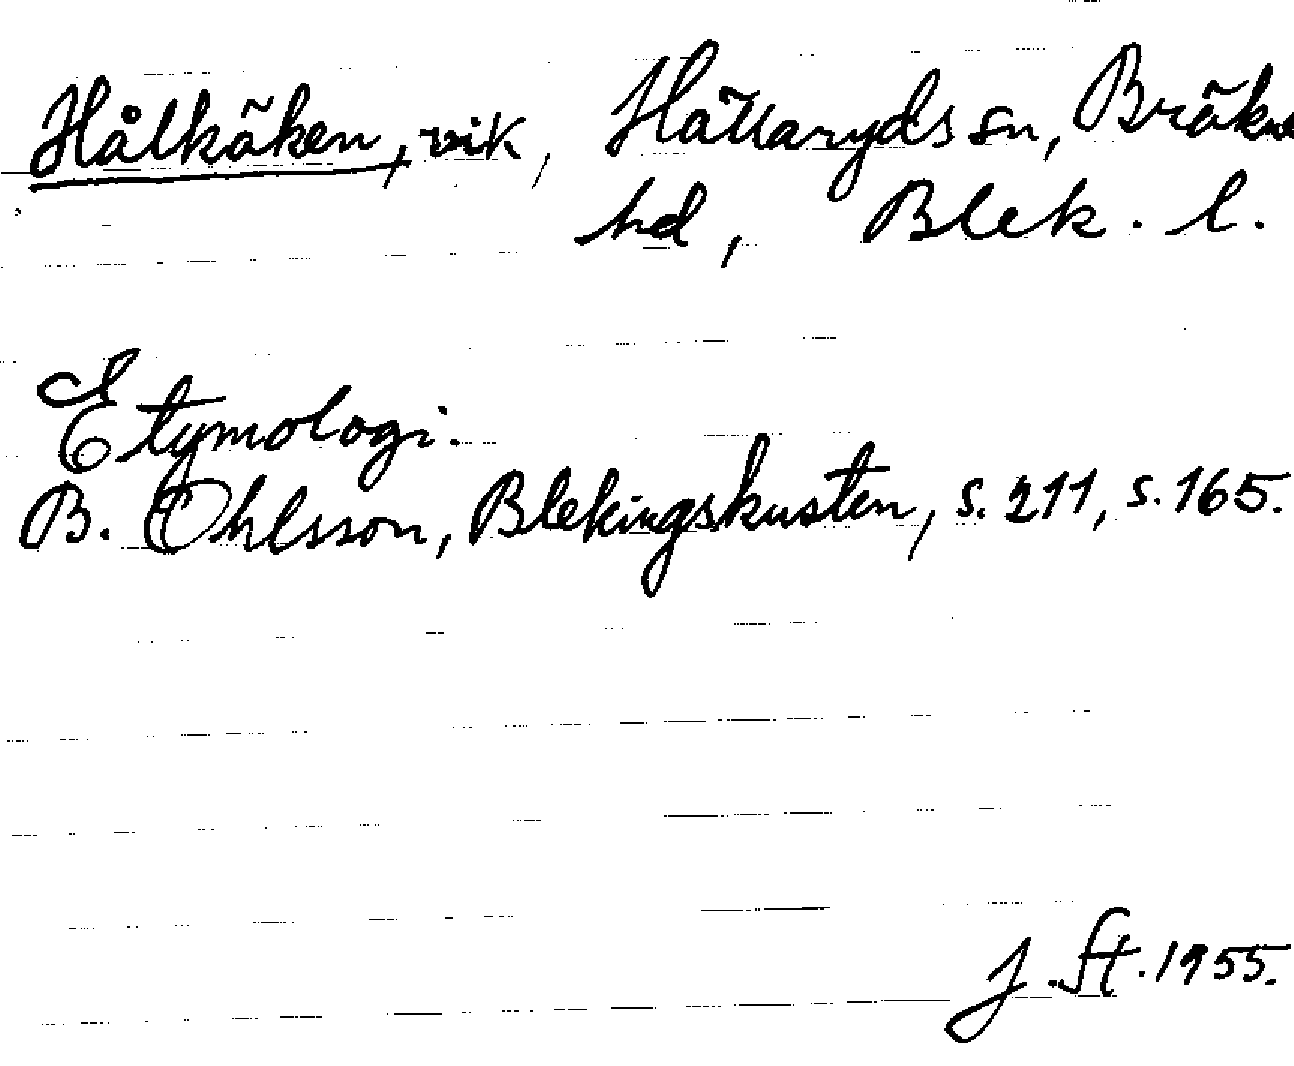 Hålkäken, vik, Hällaryds sn, Bräkne
hd, Blek. l.
Etymologi.
B. Ohlsson, Blekingskusten, s. 211, s. 165.
J. St. 1955.